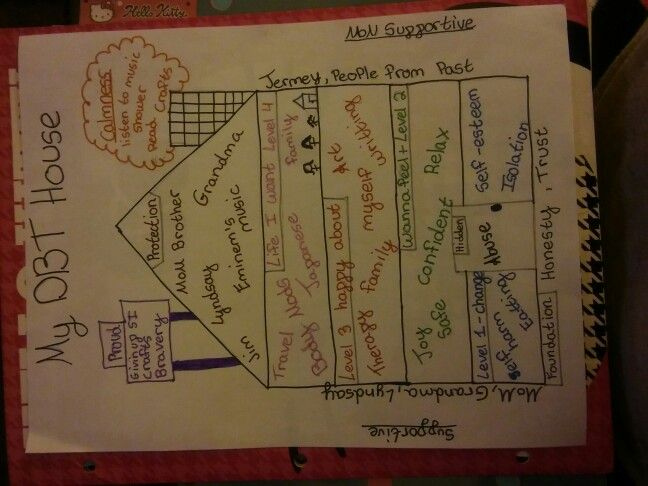 Hello Kitty
My DBT House
Calmness
listen to music
shower
Read Crafts
Proud
Givin up SI
Crafts
Bravery
Protection
Mom Brother
Lyndsay Grandma
Eminem's
music
Jim
Life I want Level 4
Travel Mods family
Baby Japanese
Level 3 happy about Art
Therapy family myself writing
Wanna feel + Level 2
Joy Confident Relax
Safe
Level 1 - change
self harm Eating
Hidden
Abuse
Self-esteem
Isolation
Foundation Honesty, Trust
Supportive
Mom, Grandma, Lyndsay
Non Supportive
Jermey, People from Past